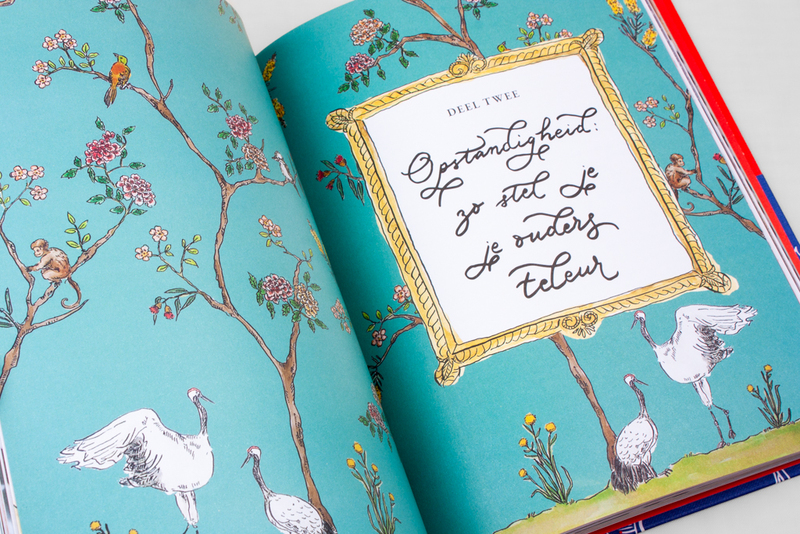 DEEL TWEE
Opstandigheid:
zo stel je
je ouders
teleur